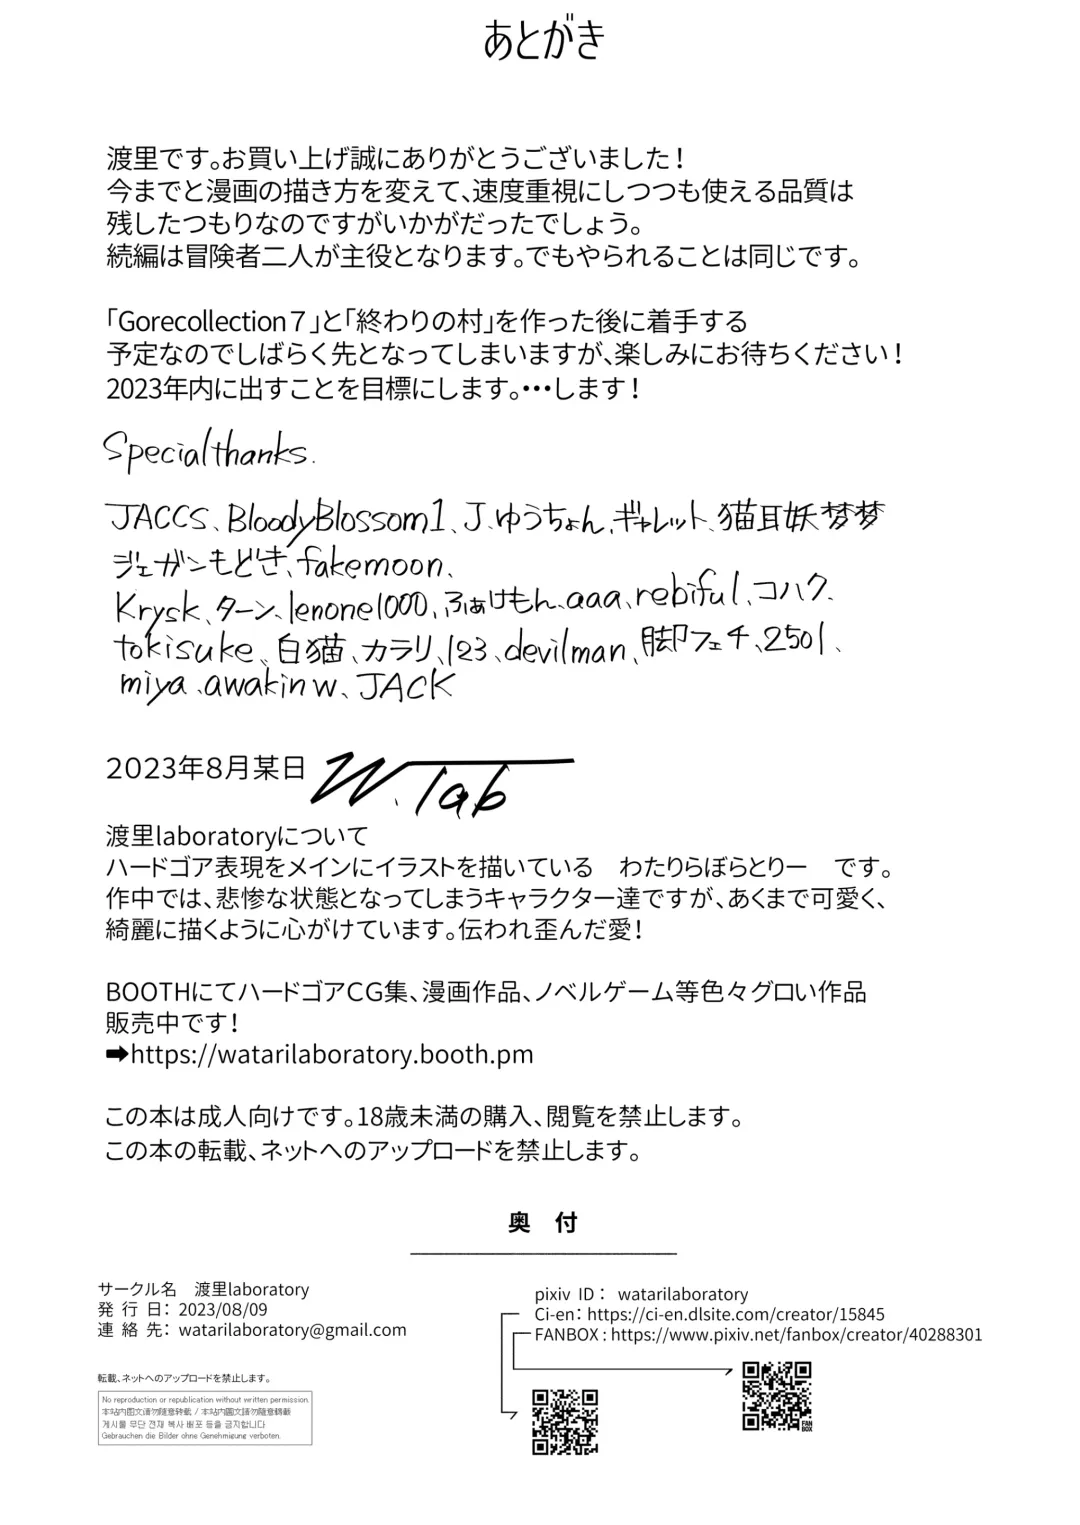 あとがき
渡里です。お買い上げ誠にありがとうございました！
今までと漫画の描き方を変えて、速度重視にしつつも使える品質は
残したつもりなのですがいかがだったでしょう。
続編は冒険者二人が主役となります。でもやられることは同じです。
「Gorecollection７」と「終わりの村」を作った後に着手する
予定なのでしばらく先となってしまいますが、楽しみにお待ちください！
2023年内に出すことを目標にします。・・・します！
Specialthanks.
JACCS、BloodyBlossom1、J、ゆうちょん、ギャレット、猫耳妖夢夢
ジェガンもどき、fakemoon、
Krysk、ターン、lenone1000、ふぁけもん、aaa、rebiful、コハク、
tokisuke、白猫、カラリ、123、devilman、脚フェチ、2501、
miya、awakinw、JACK
2023年8月某日 W.lab
渡里laboratoryについて
ハードゴア表現をメインにイラストを描いている　わたりらぼらとりー　です。
作中では、悲惨な状態となってしまうキャラクター達ですが、あくまで可愛く、
綺麗に描くように心がけています。伝われ歪んだ愛！
BOOTHにてハードゴアCG集、漫画作品、ノベルゲーム等色々グロい作品
販売中です！
➡https://watarilaboratory.booth.pm
この本は成人向けです。18歳未満の購入、閲覧を禁止します。
この本の転載、ネットへのアップロードを禁止します。
奥　付
サークル名　渡里laboratory
発 行 日： 2023/08/09
連 絡 先： watarilaboratory@gmail.com
転載、ネットへのアップロードを禁止します。
No reproduction or republication without written permission.
本站内图文请勿随意转载 / 本站內圖文請勿隨意轉載
게시물 무단 전재 복사 배포 등을 금지합니다
Gebrauchen die Bilder ohne Genehmigung verboten.
pixiv ID： watarilaboratory
Ci-en：https://ci-en.dlsite.com/creator/15845
FANBOX：https://www.pixiv.net/fanbox/creator/40288301
FAN
BOX